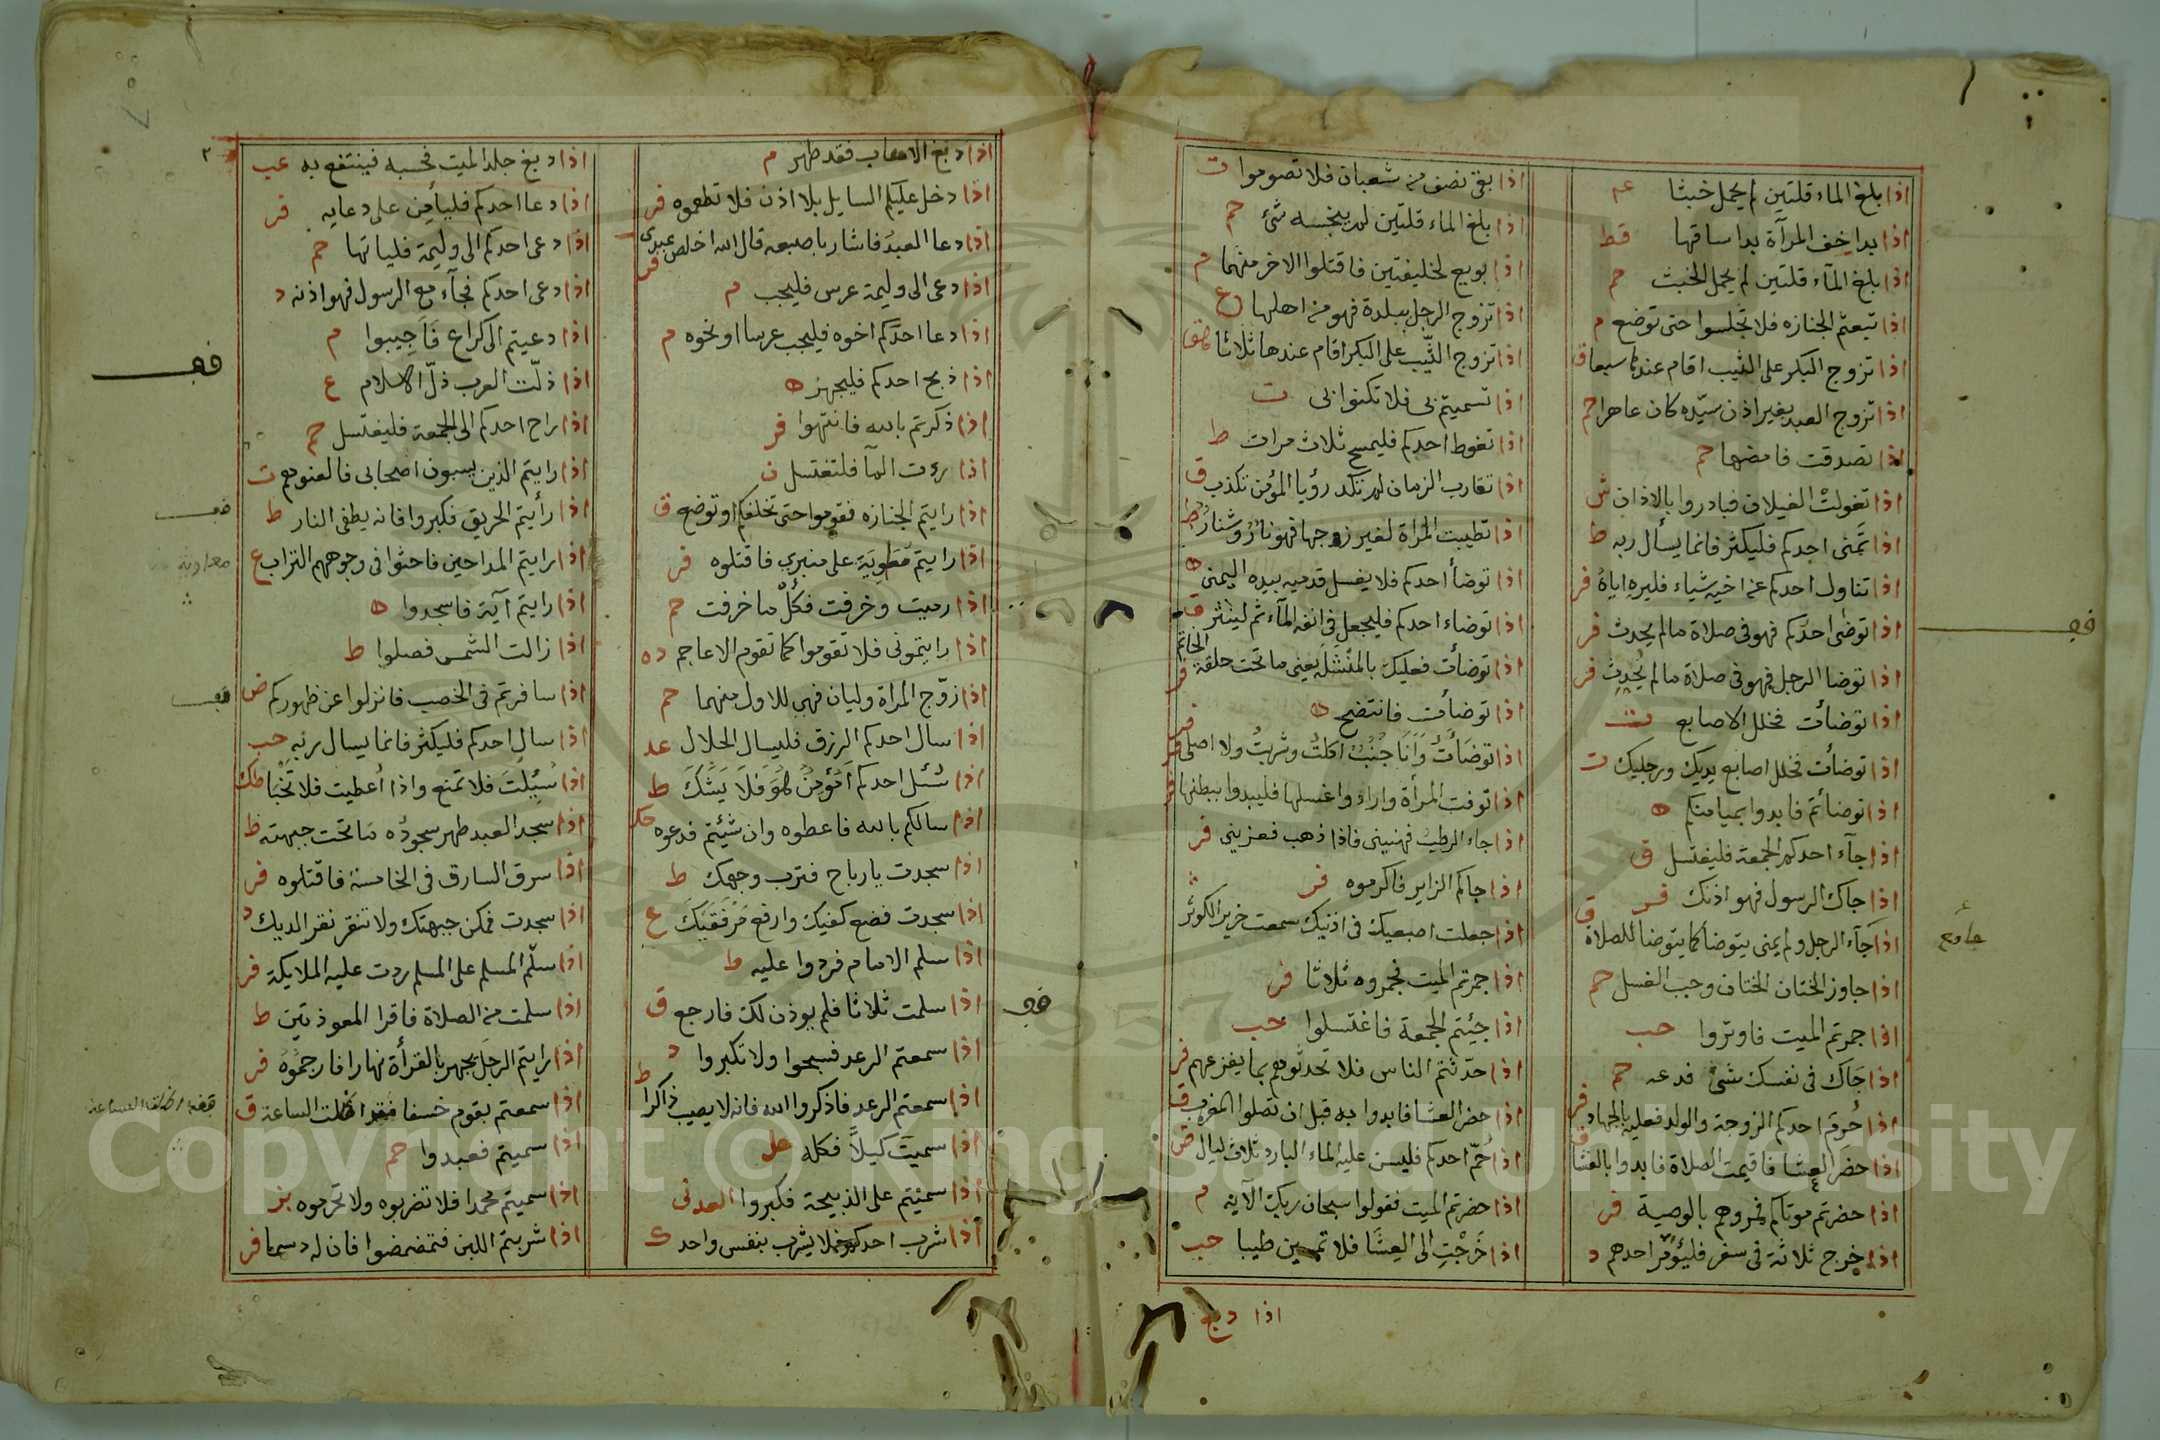 اذا بلغ الماء قلتين لم يحمل خبثا عم
اذا بدا خف المرآة بدا ساقها قط
اذا بلغ المآء قلتين لم يحمل الخبث حم
اذا تبعتم الجنازه فلا تجلسوا حتى توضع م
اذا تزوج البكر على الثيب اقام عندها سبعا ق
اذا تزوج العبد بغير اذن سيّده كان عاهرا حم
اذا تصدقت فامضها حم
اذا تغولت الغيلان فبادروا بالاذان ش
اذا تمنى احدكم فليكثر فانما يسأل ربه ط
اذا تناول احدكم عن اخيه شياء فليره اياهُ فر
اذا توضى احدكم فهو فى صلاة مالم يحدث فر
اذا توضا الرجل فهو فى صلاة مالم يحدث فر
اذا توضأت فخلل الاصابع ت
اذا توضأت فخلل اصابع يديك ورجليك ت
اذا توضأتم فابدوا بميامنكم ه
اذا جآء احدكم الجمعة فليغتسل ق
اذا جاك الرسول فهو اذنك فر
اذا جآء الرجل ولم يمنى يتوضأ كما يتوضا للصلاة ق
اذا جاوز الختان الختان وجب الغسل حم
اذا جمرتم الميت فاوتروا حب
اذا جَاكَ فى نفسك شئ فدعه حم
اذا حُرمَ احدكم الزوجة والولد فعليه بالجهاد فر
اذا حضر العشا فاقيمت الصلاة فابدوا بالعشا ق
اذا حضرتم موتاكم فمروهم بالوصية فر
اذا خرج ثلاثة فى سفر فليؤمّر احدهم د
اذا بقى نصف من شعبان فلا تصوموا ت
اذا بلغ الماء قلتين لم ينجسه شئ حم
اذا بويع لخليفتين فاقتلوا الاخر منهما م
اذا تزوج الرجل ببلدة فهو من اهلها ع
اذا تزوج الثّيب على البكر اقام عندها ثلاثا
اذا تسميتم بى فلا تكنوا بى ت
اذا تغوط احدكم فليمسح ثلاث مرات ط
اذا تقارب الزمان لم تكد رؤيا المؤمن تكذب ق
اذا تطيبت المراة لغير زوجها فهو نار وشنار ط
اذا توضأ احدكم فلا يغسل قدميه بيده اليمنى
اذا توضاء احدكم فليجعل فى انفه المآء ثم لينثر ق
اذا توضأت فعليك بالمنشلة يعنى ما تحت حلقة الخاتم فر
اذا توضأت فانتضح ه
اذا توضأت وَاَنَا جُنُبٌ اكلتُ وشربتُ ولا اصلى
اذا توفت المرأة وارادوا غسلها فليبدوا ببطنها
اذا جاء الرطب فهنينى فاذا ذهب فعزينى فر
اذا جاكم الزاير فاكرموه فر
اذا جعلت اصبعيك فى اذنيك سمعت خرير الكوثر
اذا جمرتم الميت فجمروه ثلاثا فر
اذا جيئتم الجمعة فاغتسلوا حب
اذا حدّثتم الناس فلا تحدثوهم بما يفزعهم فر
اذا حضر العشا فابدوا به قبل ان تصلوا المغرب ق
اذا حُمّ احدكم فليسن عليه الماء البارد ثلاث ليال ض
اذا حضرتم الميت فقولوا سبحان ربك الآية م
اذا خَرَجْتِ الى العِشَا فلا تمسين طيبا حب
اذا دبغ
عم
جآء ع
قف
اذا دبغ الاهاب فقد طهر م
اذا دخل عليكم السايل بلا اذن فلا تطعموه فر
اذا دعا العبدُ فاشار باصبعه قال الله اخلص عبدى فر
اذا دعى الى وليمة عرس فليجب م
اذا دعا احدكم اخوه فليجب عرسا او نحوه م
اذا ذبح احدكم فليجهز ه
اذا ذكرتم بالله فانتهوا فر
اذا رءت المآ فلتغتسل ن
اذا رايتم الجنازه فقوموا حتى تخلفكم او توضع ق
اذا رايتم معوية على منبري فاقتلوه فر
اذا رميت وخرقت فكُلْ ما خرقت حم
اذا رايتمونى فلا تقوموا كما تقوم الاعاجم ده
اذا زوّج المراة وليان فهى للاول منهما حم
اذا سال احدكم الرزق فليسال الحلال عد
اذا سُئل احدكم اَمُؤمِنٌ هُوَ فَلَا يَشُكَّ ط
اذا سالكم بالله فاعطوه وان شيئتم فدعوه
اذا سجدت يارباح فترب وجهك ط
اذا سجدت فضع كفيك وارفع مَرْفَقيكَ ع
اذا سلم الامام فردوا عليه ط
اذا سلمت ثلاثا فلم يوذن لك فارجع ق
اذا سمعتم الرعد فسبحوا ولا تكبروا د
اذا سمعتم الرعد فاذكروا الله فانه لا يصيب ذاكرا ط
اذا سميت كيلاً فكله
اذا سميتم على الذبيحة فكبروا العدنى
اذا شرب احدكم فلا يشرب بنفس واحد ك
اذا دبغ جلد الميت فحسبه فينتفع به عب
اذا دعا احدكم فليأمن على دعايه فر
اذا دعى احدكم الى وليمة فلياتها حم
اذا دعى احدكم فجآء مع الرسول فهو اذنه د
اذا دعيتم الى كراع فَاَجِيبوا م
اذا ذلّت العرب ذلّ الاسلام ع
اذا راح احدكم الى الجمعة فليغتسل حم
اذا رايتم الذين يسبون اصحابى فالعنوهم ت
اذا رأيتم الحريق فكبروا فانه يطفى النار ط
اذا رايتم المداحين فاحثوا فى وجوههم التراب ع
اذا رايتم آية فاسجدوا ه
اذا زالت الشمس فصلوا ط
اذا سافرتم فى الخصب فانزلوا عن ظهوركم ض
اذا سال احدكم فليكثر فانما يسال ربّه حب
اذا سُئِلتَ فلا تمنع واذا اُعطيت فلا تَخْبَا طك
اذا سجد العبد طهر سجودُه مَا تحت جبهته ط
اذا سرق السارق فى الخامسة فاقتلوه فر
اذا سجدت فمكن جبهتك ولا تنقر نقر الديك د
اذا سلّم المسلم على المسلم ردت عليه الملايكة فر
اذا سلمت من الصلاة فاقرا المعوذتين ط
اذا رايتم الرجل يجهر بالقرأة نهارا فارجموه فر
اذا سمعتم بقوم خسفا فقد اظلت الساعة ق
اذا سميتم فعبدوا حم
اذا سميتم محمدا فلا تضربوه ولا تحرموه بز
اذا شربتم اللبن فتمضمضوا فان له دسما فر
معاوية
Copyright © King Saud University
1957